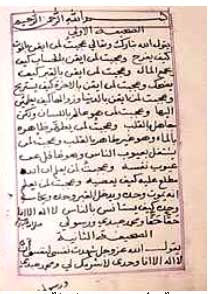 بسم الله الرحمن الرحيم
الصحيفة الاولى
يقول الله تبارك وتعالى عجبت لمن ايقن بالموت
كيف يفرح وعجبت لمن ايقن بالحساب كيف
يجمع المال وعجبت لمن ايقن بالقبر كيف
يضحك وعجبت لمن ايقن بالاخرة كيف يستريح
وعجبت لمن ايقن بالدنيا وزوالها كيف يطمئن
اليها وعجبت لمن هو عالم باللسان
جاهل بالقلب وعجبت لمن يطهر ظاهره
بالماء وهو غير طاهر بالقلب وعجبت لمن
يشتغل بعيوب الناس وهو غافل عن
عيوب نفسه وعجبت لمن يعلم ان الله
مطلع عليه كيف يعصيه وعجبت لمن يعلم
انه يموت وحده ويدخل القبر وحده ويحاسب
وحده كيف يستأنس بالناس لا اله الا انا
حقا حقا ومحمد عبدي ورسولي
الصحيفة الثانية
يقول الله عز وجل شهدت نفسي لنفسي
لا اله الا انا وحدي لا شريك لي ومحمد عبدي
ورسولي